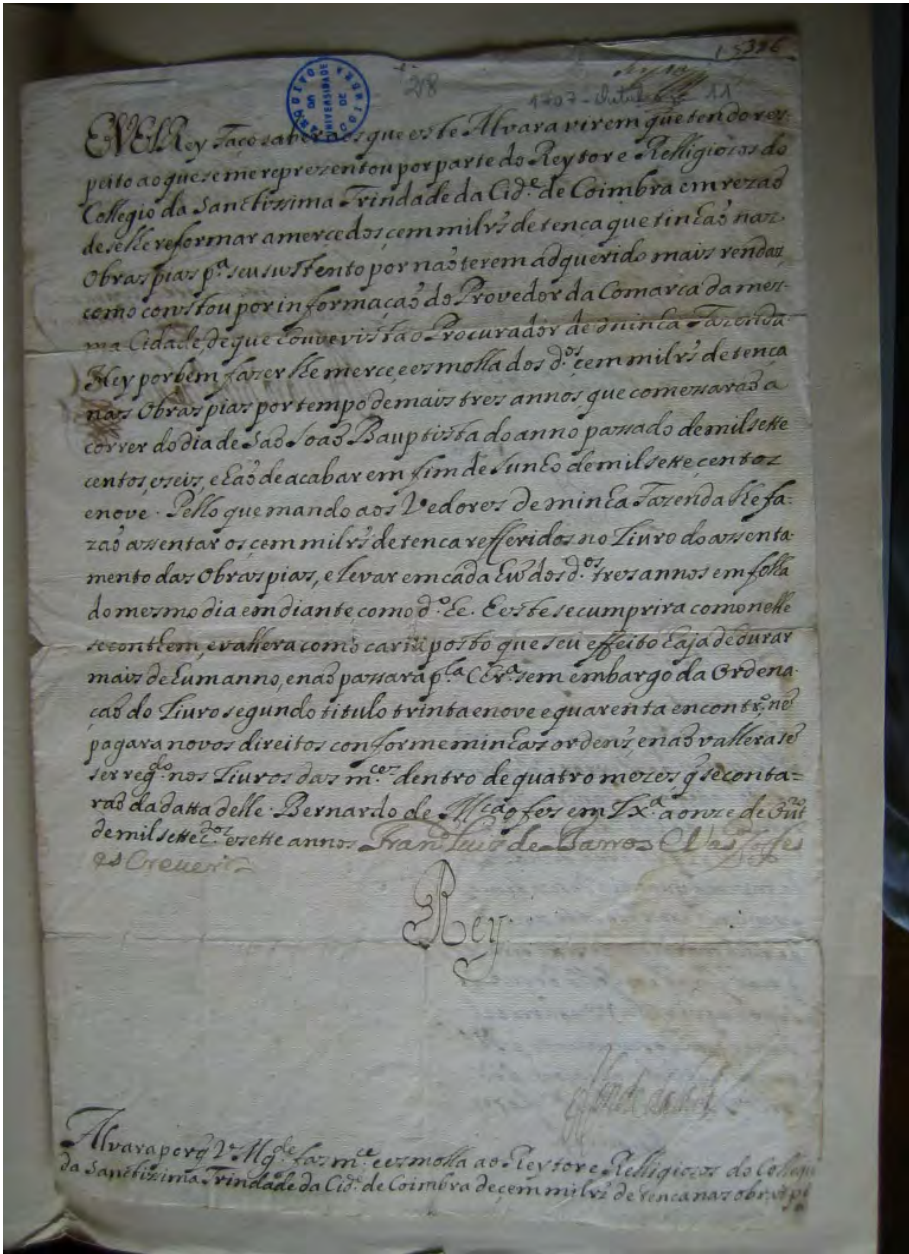 15386
218
1707 - Outubro - 11
ARQUIVO DA UNIVERSIDADE DE COIMBRA
EV ElRey Faço saber aos que este Alvara virem que tendo res-
peito ao que se me reprezentou por parte do Reytor e Relligiozos do
Collegio da Sanctissima Trindade da Cid.e de Coimbra em rezaõ
de se lhe reformar a merce dos cem mil rs de tença que tinhaõ nas
Obras pias p.a seu sustento por naõ terem adquerido mais rendas,
como constou por informaçaõ do Provedor da Comarca da mes-
ma Cidade, de que houve vista o Procurador de minha Fazenda
Hey por bem fazer lhe merce, e esmolla dos d.os cem mil rs de tença
nas Obras pias por tempo de mais tres annos que comessaraõ a
correr do dia de Saõ Joaõ Bauptista do anno passado de mil sette
centos, e seis, e haõ de acabar em fim de Junho de mil sette centos
e nove. Pello que mando aos Vedores de minha Fazenda lhe fa-
zaõ assentar os cem mil rs de tença refferidos no Livro do assenta-
mento das Obras pias, e levar em cada hũ dos d.os tres annos em folha
do mesmo dia em diante, como d.o he. E este se cumprira como nelle
se conthem, e vallera como carta posto que seu effeito haja de durar
mais de hum anno, e naõ passara p.la Chr.a sem embargo da Ordena-
çaõ do Livro segundo titulo trinta e nove e quarenta en contr.o, nẽ
pagara novos direitos conforme minhas ordens, e naõ vallera sẽ
ser reg.do nos Livros das m.ces dentro de quatro mezes q̃ se conta-
raõ da datta delle. Bernardo de o fes em Lx.a a onze de Out.ro
de mil sette c.tos e sette annos Fran.co Luis de Barros e Vas.los o fes
escreuer
Rey.
Alvara porq̃ V. Mg.de faz m.ce e esmolla ao Reytor e Relligiozos do Collegio
da Sanctissima Trindade da Cid.e de Coimbra de cem mil rs de tença nas obras pi